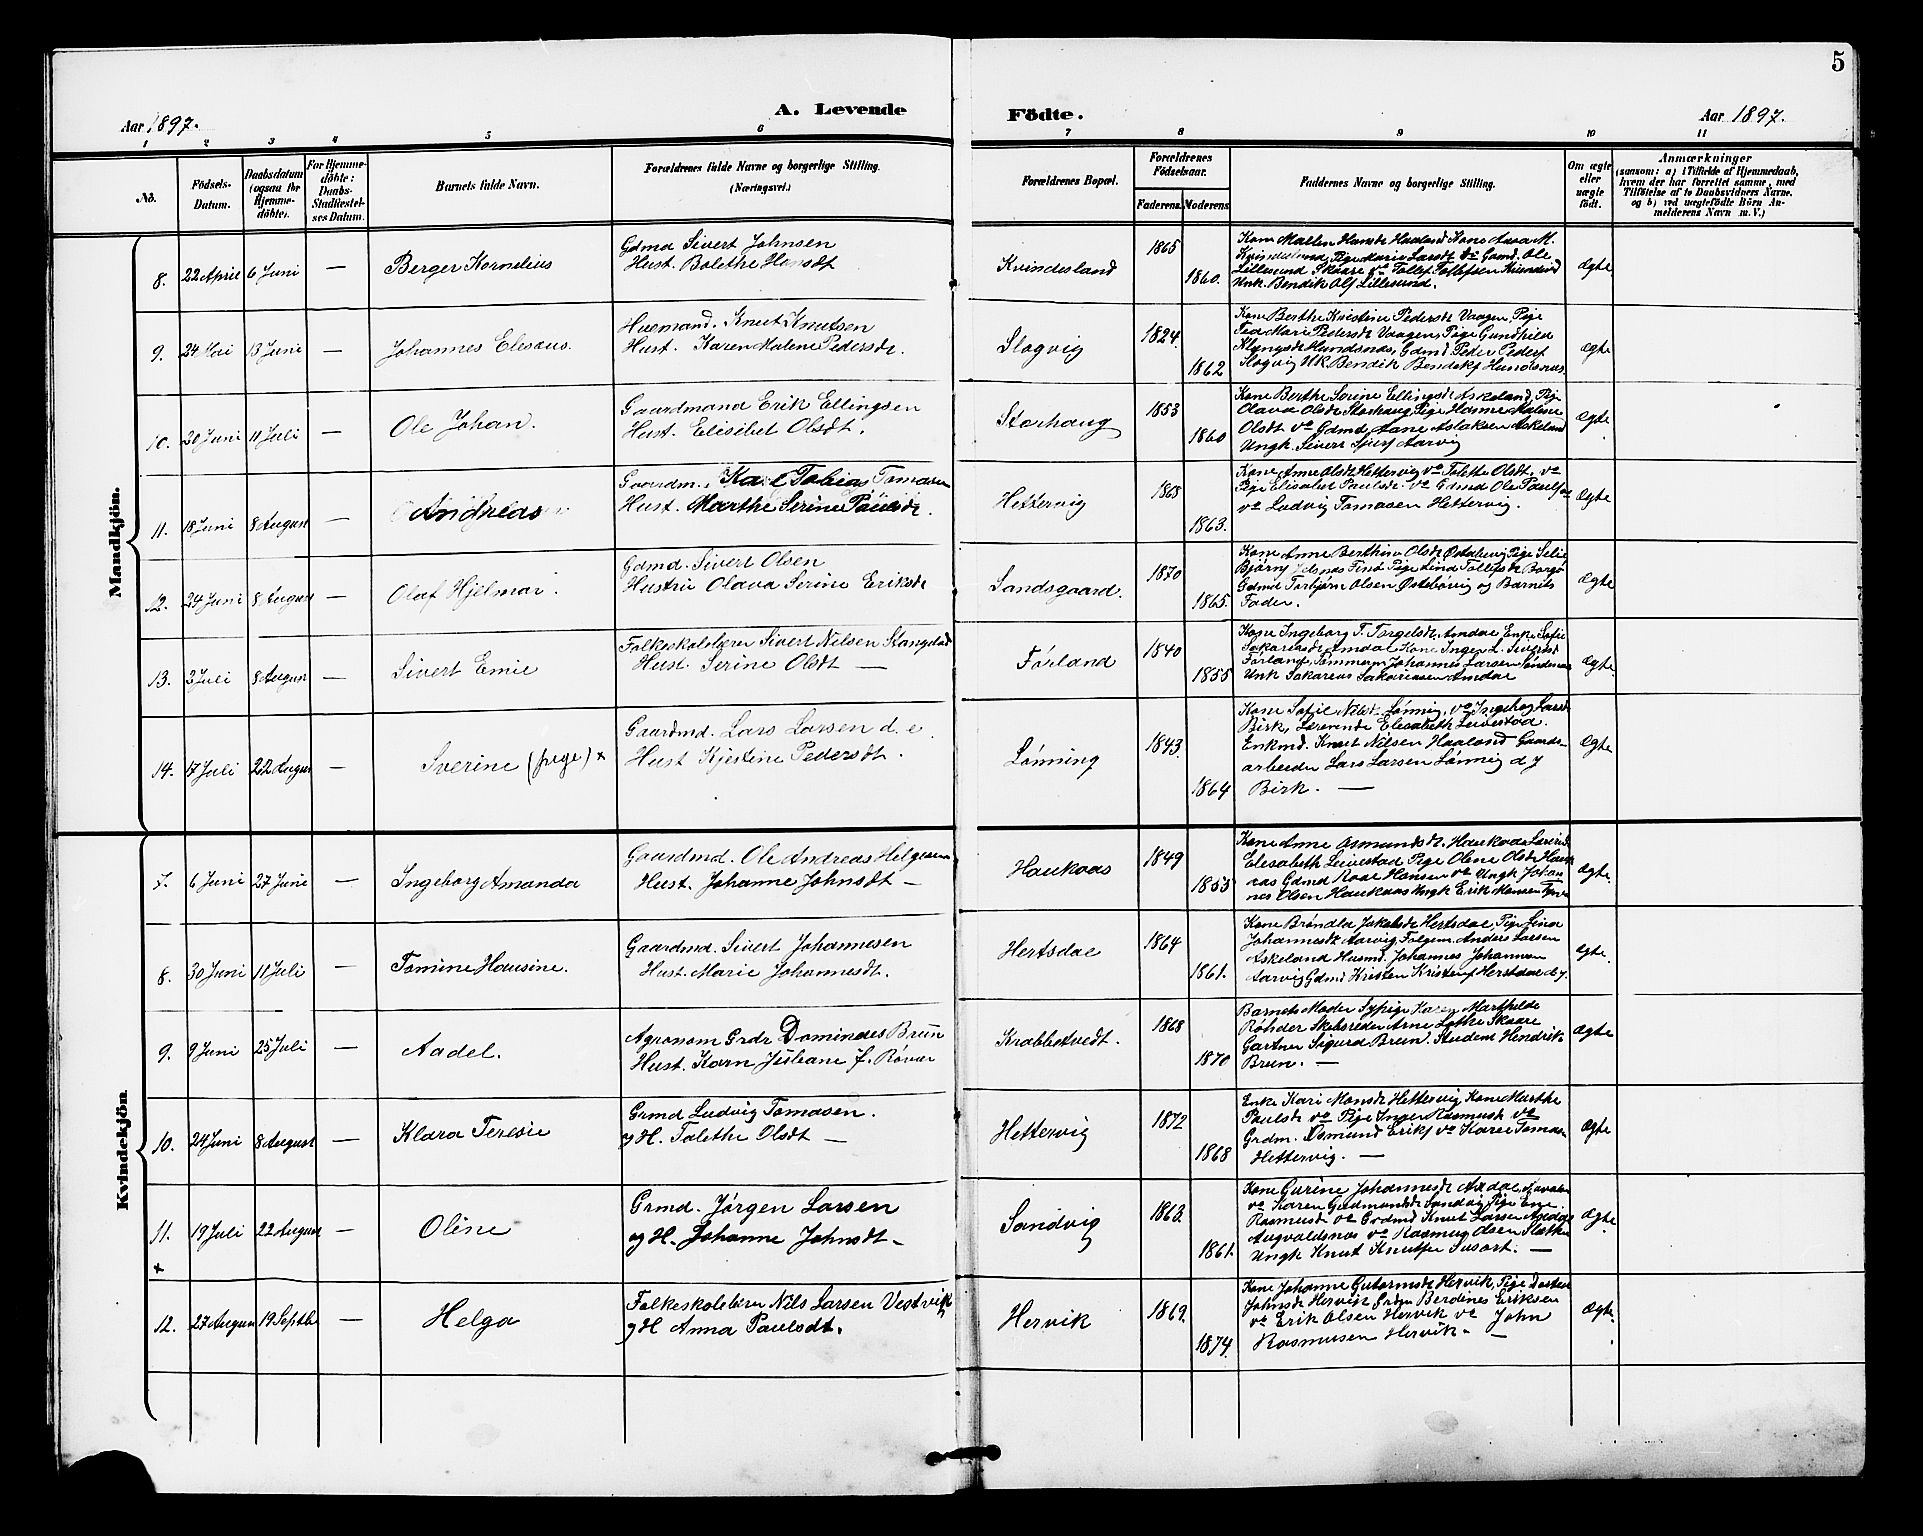 5
A. Levende Födte.
Aar 1897.
Aar 1897.
1 2 3 4 5 6 7 8 9 10 11
No.
Födsels-Datum.
Daabsdatum (ogsaa for Hjemmedöbte).
For Hjemmedöbte: Daabs-Stadfæstelses Datum.
Barnets fulde Navn.
Forældrenes fulde Navne og borgerlige Stilling. (Næringsvei.)
Forældrenes Bopæl.
Forældrenes Födselsaar.
Faderens. Moderens.
Faddernes Navne og borgerlige Stilling.
Om ægte eller uægte födt.
Anmærkninger
(saasom: a) i Tilfælde af Hjemmedaab, hvem der har forrettet samme, med Tilföielse af to Daabsvidners Navne. og b) ved uægtefödte Börn Anmelderens Navn m. V.)
Mandkjön.
8. 22 April 6 Juni — Berger Kornelius
Gdmd Sivert Johnsen
Hust. Bolethe Hansdt
Kvindesland 1865 1860.
Kone Mallen Hansdt Haaland Kone Anna M.
Lillesund Skaare
Unk. Bendik Olf Lillesund.
Ægte
9. 24 Mai 13 Juni — Johannes Elesæus.
Husmand. Knut Knutsen
Hust. Karen Malene Pedersdt.
Slogvig 1824. 1862
Kone Berthe Kristine Pedersdt Vaagen, Pige
Pedersdt Vaagen, Pige Gundhild
Hundsnæs, Gdmd. Peder Peders
Slogvig Unk. Bendik Hundsnæs
Ægte
10. 20 Juni 11 Juli — Ole Johan.
Gaardmand Erik Ellingsen
Hust. Elisibet Olsdt.
Storhaug 1853 1860
Kone Berthe Serine Ellingsdt Askeland, Pige
Olava Olsdt Storhaug Pige Hanne Malene
Olsdt vo Gdmd. Aslaksen Askeland
Ungk. Sivert Aarvig
Ægte
11. 18 Juni 8 August — Andreas
Gaardm. Karl Tobias Tomasen
Hust. Marthe Serine Paulsdt.
Hettervig 1868 1863.
Kone Anne Olsdt Hettervig vo Talette Olsdt. vo
Pige Elisabet Paulsdt. vo Gdmd Ole Paulsen
vo Ludvig Tomasen Hettervig.
Ægte
12. 24 Juni 8 August — Olaf Hjelmar.
Gdmd. Sivert Olsen
Hustru Olava Serine Eriksdt
Sandsgaard. 1870 1865.
Kone Anne Berthine Olsdt Pige
Gdmd Torbjørn Olsen Østebøvig og Barnets
Fader.
Ægte
13. 3 Juli 8 August — Sivert Emil
Folkeskolelærer Sivert Nilsen Stangeland
Hust. Serine Olsdt —
Førland 1840 1855
Kone Ingeborg T. Torgelsdt. Amdal Enke Sofie
Sakariasdt Amdal Kone Inger L. Siversdt
Førland, Tømmerm Johannes Larsen
Unk Sakarias Sakariasen Amdal
Ægte.
14. 17 Juli 22 August Sverine (pige) x
Gaardmd. Lars Larsen d. e.
Hust Kjestine Pedersdt.
Lønning 1843. 1864
Kone Sofie Nilsdt. Lønnig, vo Ingeborg Larsdt
Birk, Lærerinde Elesabeth Leirestad.
Enkmd. Knut Nilsen Haaland Gaards-
arbeider Lars Larsen Lønnig d y
Birk. —
Ægte
Kvindekjön
7. 6 Juni 27 Juni — Ingeborg Amanda
Gaardmd. Ole Andreas Helgesen
Hust. Johanne Johnsdt —
Haukaas 1849 1855
Kone Anne Asmundsdt. Haukaas Lærerinde
Elesabeth Leirestad Pige Olene Olsdt Hauk-
aas Gdmd Roal Hansen vo Ungk Johan-
nes Olsen Haukaas Ungk Erik Monsen
Ægte.
8. 30 Juni 11 Juli — Tomine Hansine.
Gaardmd. Sivert Johannesen
Hust. Marie Johannesdt.
Hertsdal 1864 1861.
Kone Brøndla Jakobsdt Hertsdal, Pige Lina
Johannesdt Aarvig, Anders Larsen
Askeland Husmd. Johannes Johannesen
Aarvig Gdmd Kristen Kristens Herstdal d. y.
Ægte.
9. 9 Juni 25 Juli — Aadel.
Agronom Grdr Dominedes Brun
Hust. Karn Juliane f. Røvær
Krabbetvedt. 1868 1870
Barnets Moder Sypige Karen Marthilde
Røhder Skibsreder Arne Lothe Skaare
Gartner Sigurd Brun. Student Hendrik
Brun. —
Ægte
10. 24 Juni 8 August — Klara Teresie
Grmd Ludvig Tomasen.
og H. Talethe Olsdt —
Hettervig 1872 1868
Enke Kari Monsdt Hettervig Kone Marthe
Paulsdt vo Pige Inger Rasmusdt vo
Grdm. Osmund Eriks vo Karl Tomas
Hettervig. —
Ægte
11. x 19 Juli 22 August — Oline
Grmd. Jørgen Larsen
og H. Johanne Johnsdt —
Sandvig 1863. 1861.
Kone Gurine Johannesdt
vo Karen Gudmundsdt Sandvig Pige
Rasmusdt vo Grdmd Knut Larsen
Augvaldsnæs vo Rasmus Olsen
Ungk Knut Knutsen Susort. —
Ægte.
12. 27 August 19 Septb — Helga
Folkeskolelærer Nils Larsen Vestvik
og H Anna Paulsdt.
Hervik 1869. 1874.
Kone Johanne Gutormsdt Hervik, Pige
Johnsdt Hervik Grdm Berdines Eriksen
vo Erik Olsen Hervik vo John
Rasmusen Hervik. —
Ægte.